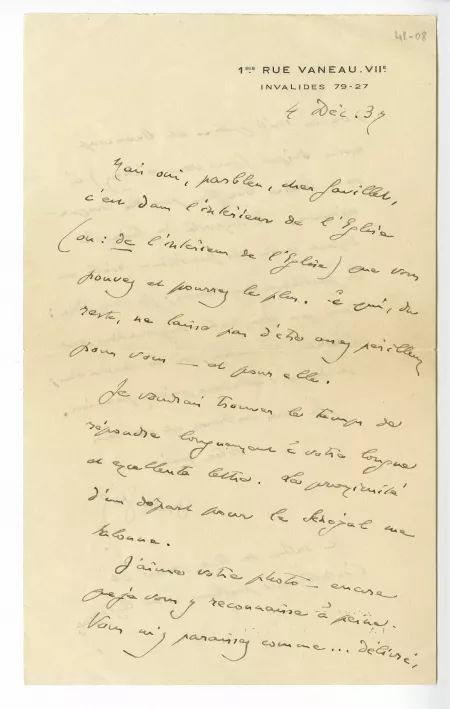 41-08
1BIS RUE VANEAU. VIIE
INVALIDES 79-27
4 Déc. 37
Mais oui, parbleu, cher Favillet,
c'est dans l'intérieur de l'Eglise
(ou : de l'intérieur de l'Eglise) que vous
pouvez et pourrez le plus. Ce qui, du
reste, ne laisse pas d'être assez périlleux
pour vous — et pour elle.
Je voudrais trouver le temps de
répondre longuement à votre longue
et excellente lettre. La proximité
d'un départ pour le Sénégal me
talonne.
J'aime votre photo — encore
que je vous y reconnaisse à peine.
Vous m'y paraissez comme... délivré,